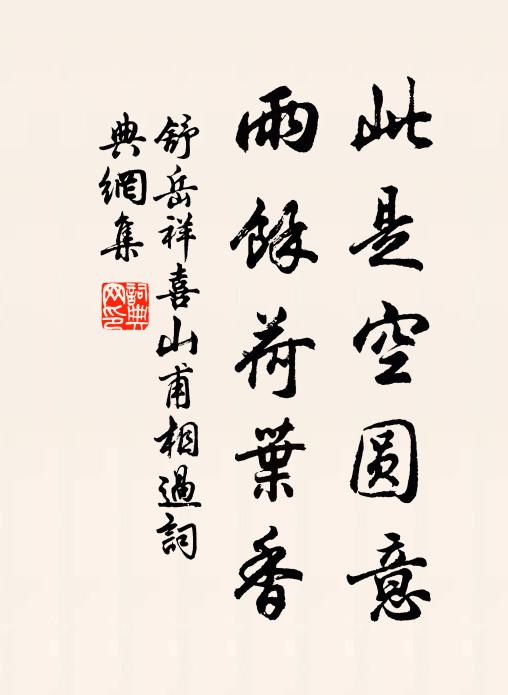 此是空圆意
雨餘荷葉香
舒岳祥喜山甫相過詞
典網集
詞典
网印